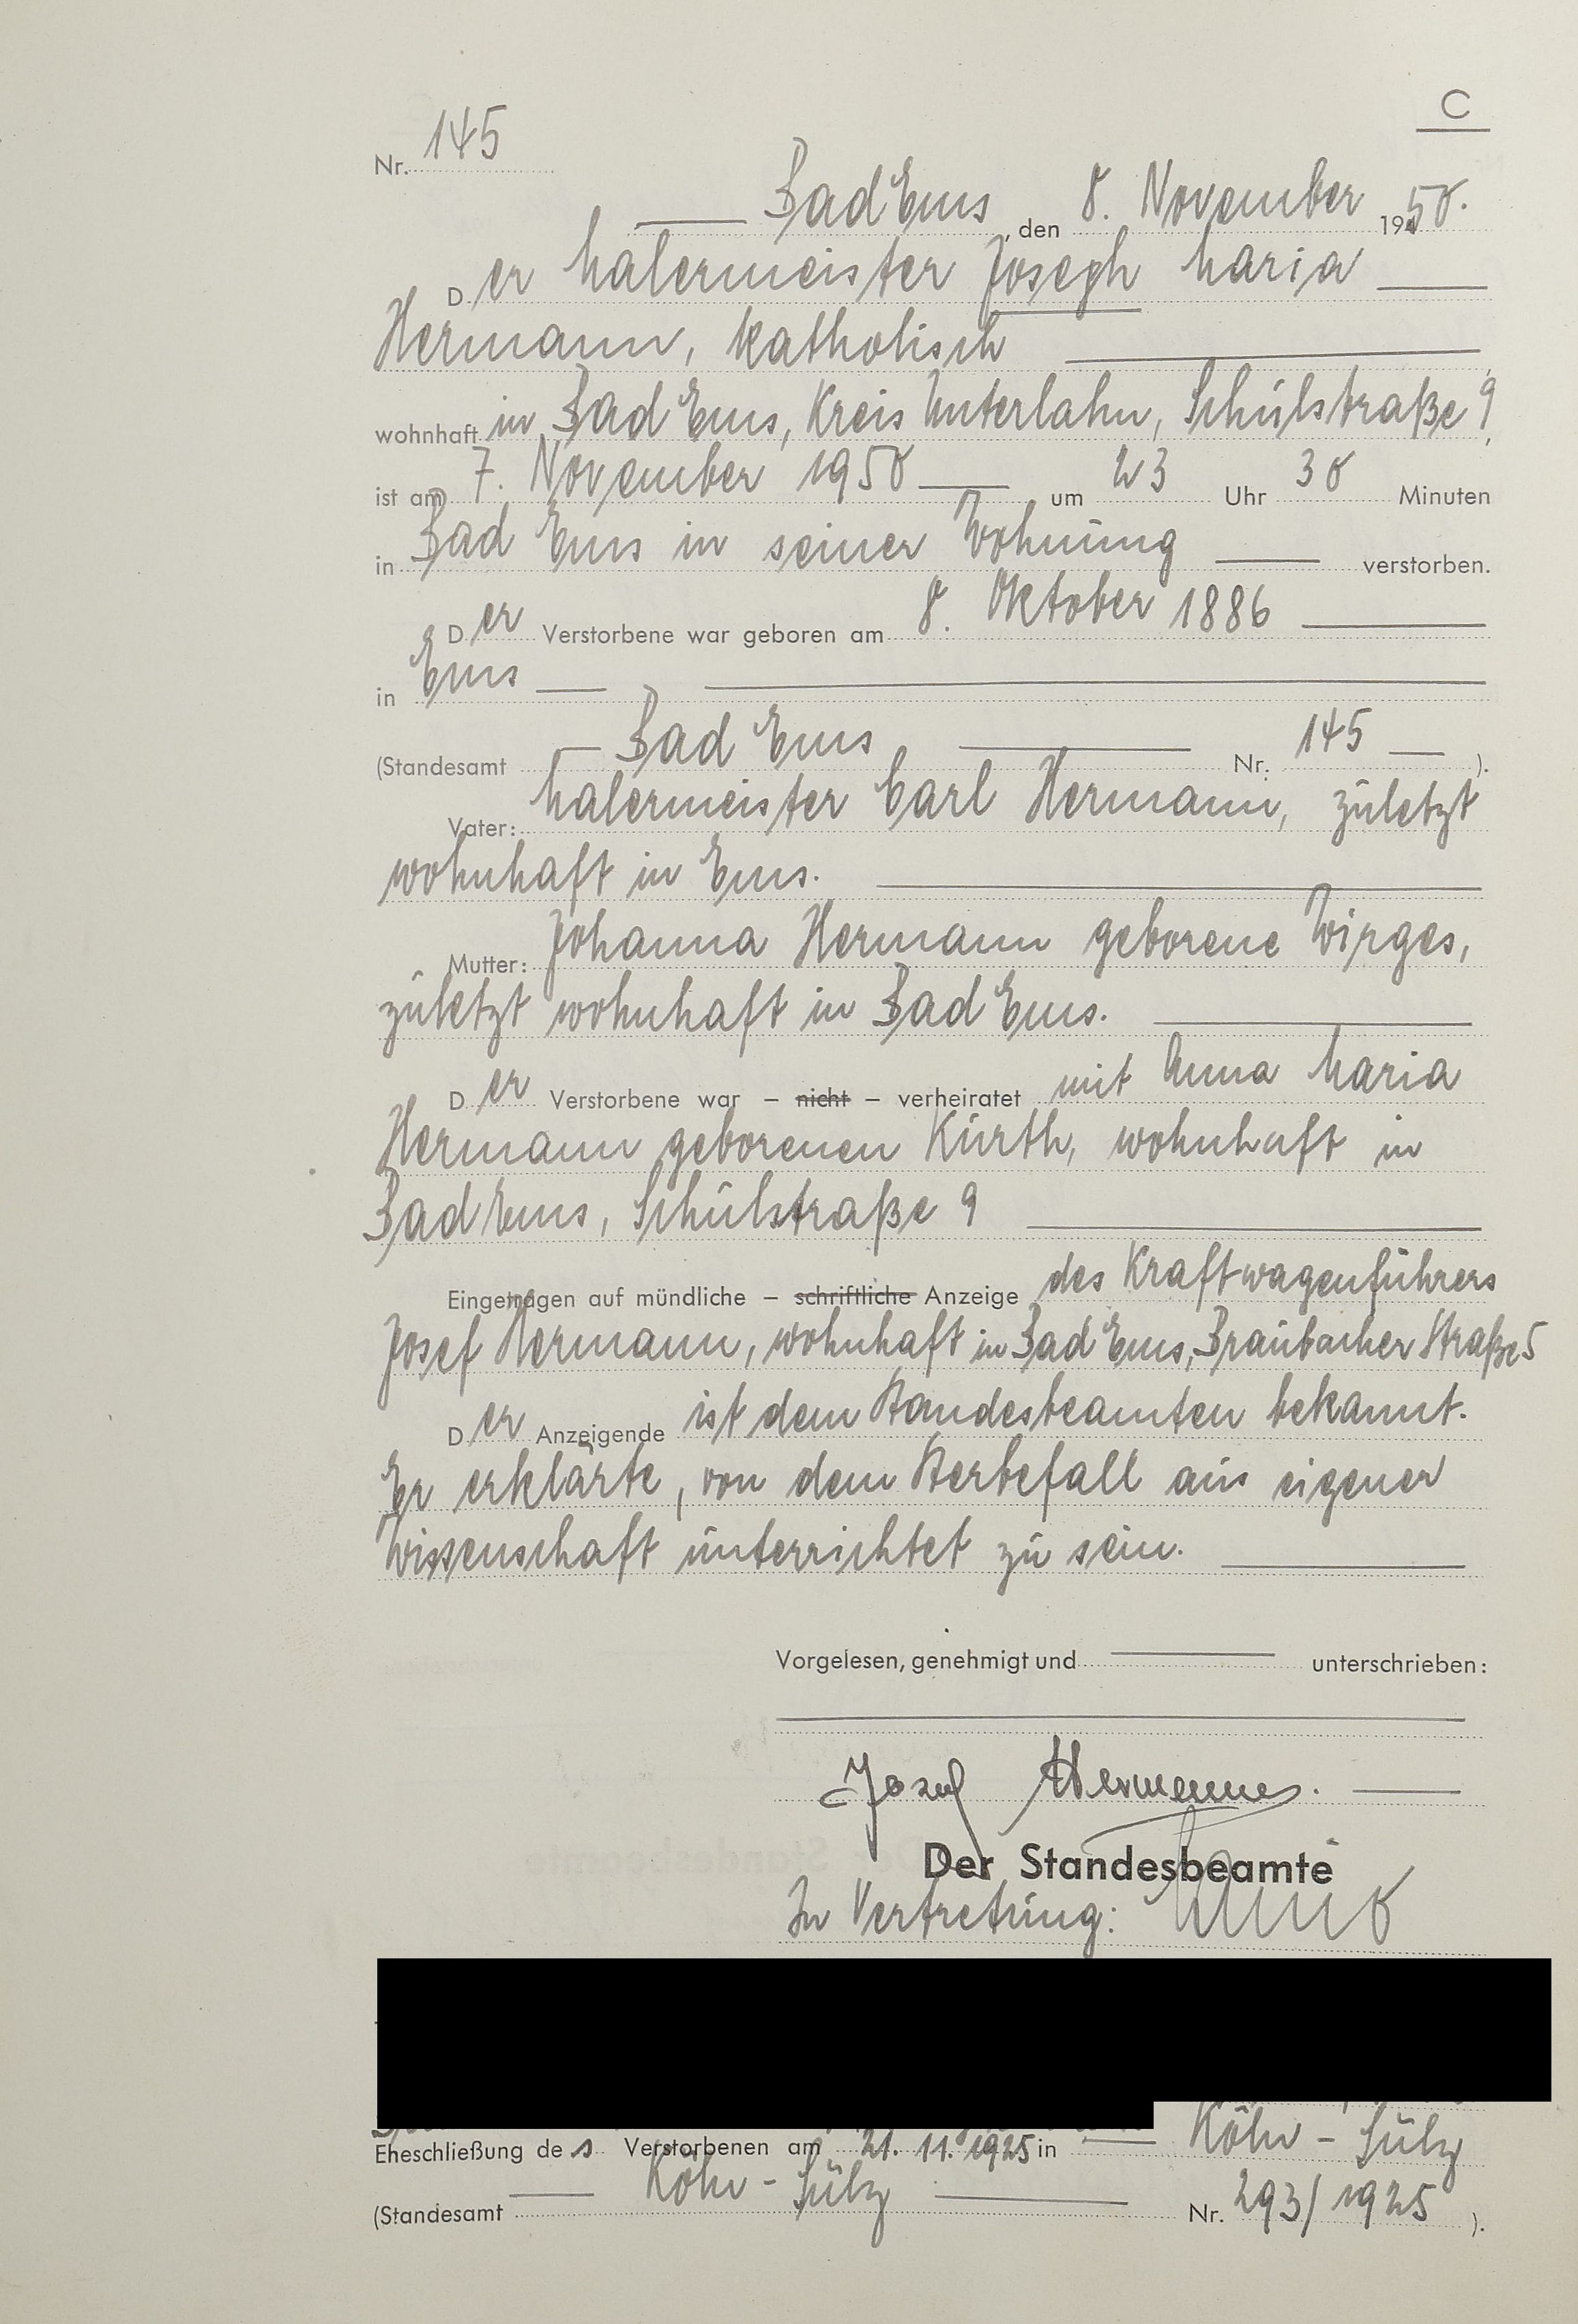 C
Nr. 145
Bad Ems, den 8. November 1950.
Der Malermeister Joseph Maria
Hermann, katholisch
wohnhaft in Bad Ems, Kreis Unterlahn, Schulstraße 9,
ist am 7. November 1950 um 23 Uhr 30 Minuten
in Bad Ems in seiner Wohnung verstorben.
Der Verstorbene war geboren am 8. Oktober 1886
in Ems
(Standesamt Bad Ems Nr. 145 ).
Vater: Malermeister Carl Hermann, zuletzt
wohnhaft in Ems.
Mutter: Johanna Hermann geborene Wirges,
zuletzt wohnhaft in Bad Ems.
Der Verstorbene war – nicht – verheiratet mit Anna Maria
Hermann geborenen Kurth, wohnhaft in
Bad Ems, Schulstraße 9
Eingetragen auf mündliche – schriftliche Anzeige des Kraftwagenführers
Josef Hermann, wohnhaft in Bad Ems, Braubacher Straße 5
Der Anzeigende ist dem Standesbeamten bekannt.
Er erklärte, von dem Sterbefall aus eigener
Wissenschaft unterrichtet zu sein.
Vorgelesen, genehmigt und unterschrieben:
Josef Hermann.
Der Standesbeamte
In Vertretung:
Eheschließung des Verstorbenen am 21. 11. 1925 in Köln - Sülz
(Standesamt Köln - Sülz Nr. 293/1925 ).